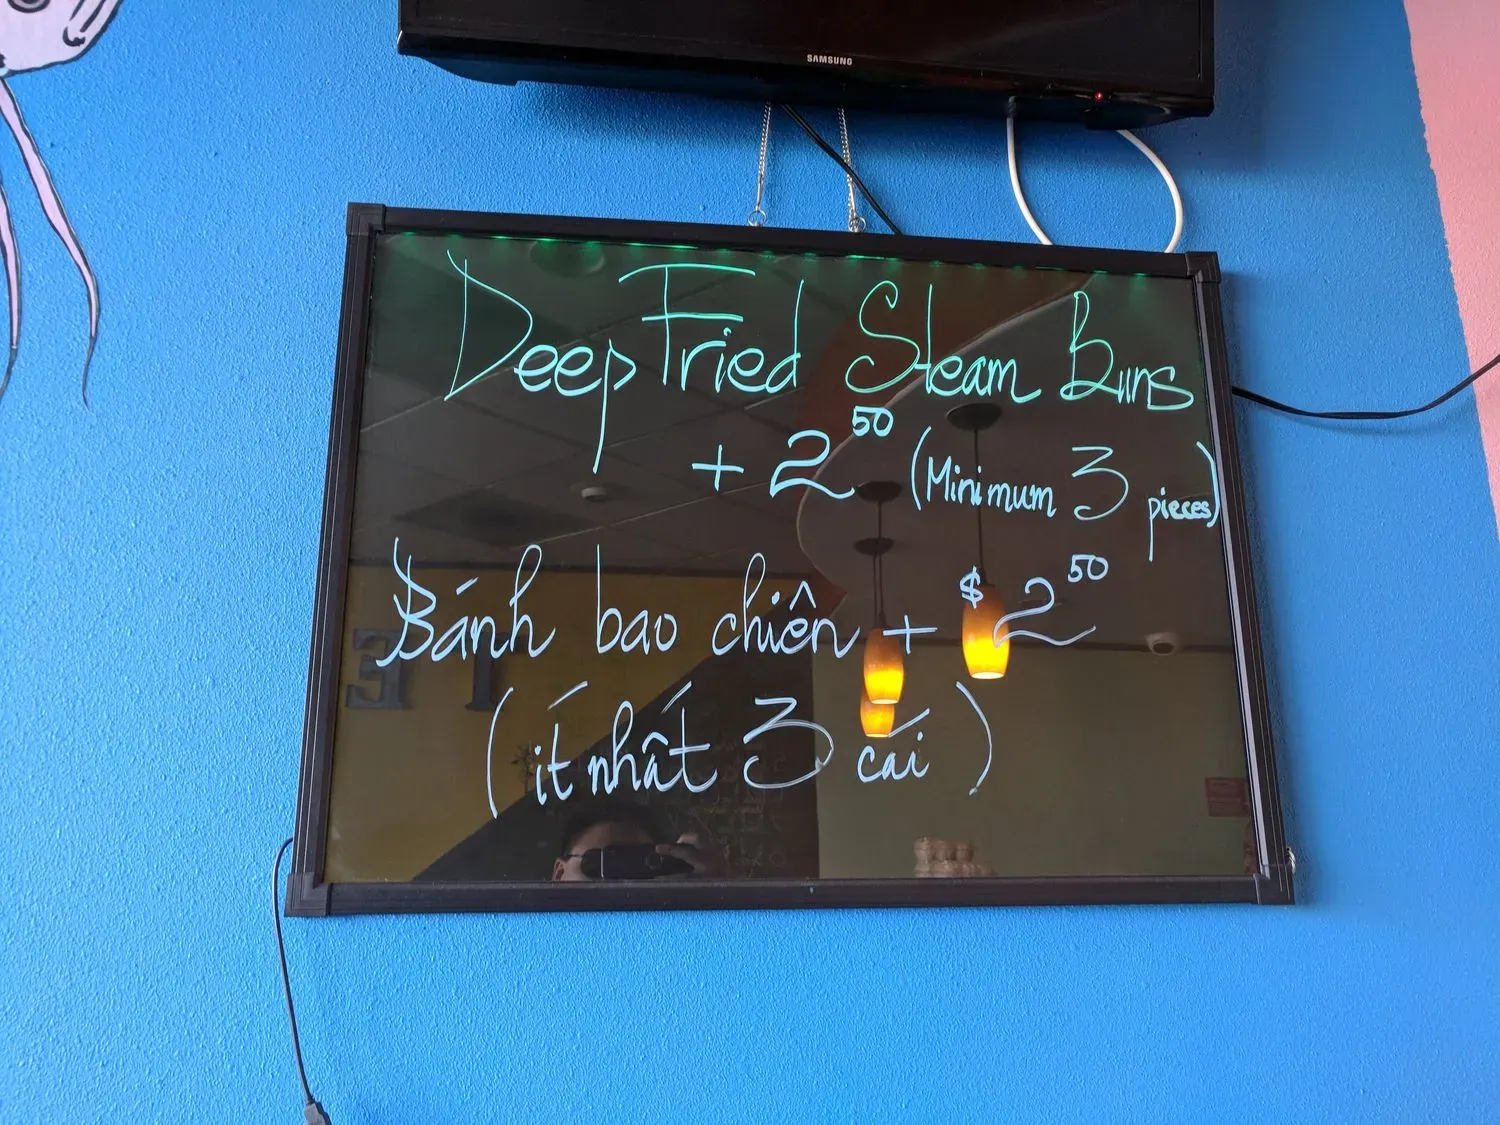 SAMSUNG
Deep Fried Steam Buns
+ 2 50 (Minimum 3 pieces)
Bánh bao chiên + $ 2 50
(ít nhất 3 cái)